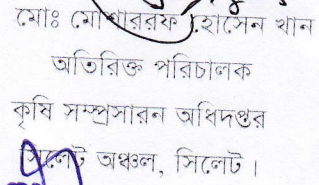 মোঃ মোশাররফ হোসেন খান
অতিরিক্ত পরিচালক
কৃষি সম্প্রসারন অধিদপ্তর
সিলেট অঞ্চল, সিলেট।